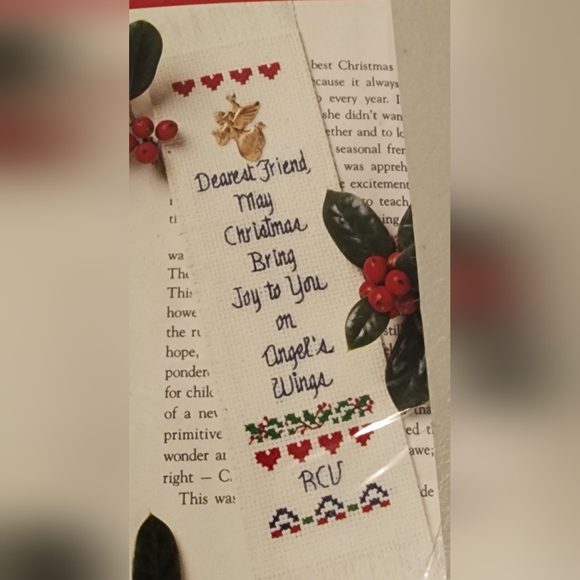 Dearest Friend,
May
Christmas
Bring
Joy to You
on
Angel's
Wings
RCV
best Christmas
cause it always
every year. I
she didn't wan
ether and to
seasonal
was
excitement
to teach
ing
wa
The
This
howe
the
hope,
ponder
for
of a
primitive
wonder
right — C.
This was
still
ed
awe;
de